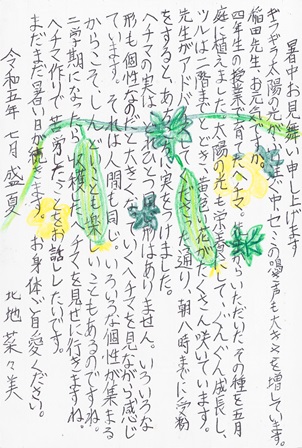 暑中お見舞い申し上げます
ギラギラ太陽の光がぐ中セミの鳴き声も大きさを増しています。
稲田先生、お元気ですか。
四年生の授業で育てたヘチマ。いただいたその種を五月
庭に植えました。太陽の光も栄養にして、ぐんぐん成長し、
ツルは二階までとどき、黄色い花がたくさん咲いています。
先生がアドバイスしてくださった通り、朝八時までに受粉
をすると、実をつけました。
ヘチマの実はひとつ同じ形はありません。いろいろな
形も個性なのだと大きくなっていくヘチマを見ながら感じ
ています。それは人間も同じ。いろいろな個性が集まる
からこそ、ことも楽しいこともあるのですね。
二学期になったら収穫したヘチマを見せに行きますね。
ヘチマ作りで苦労したことをお話ししたいです。
まだまだ暑い日が続きます。お身体ご自愛ください。
令和五年 七月 盛夏
北地 菜々美